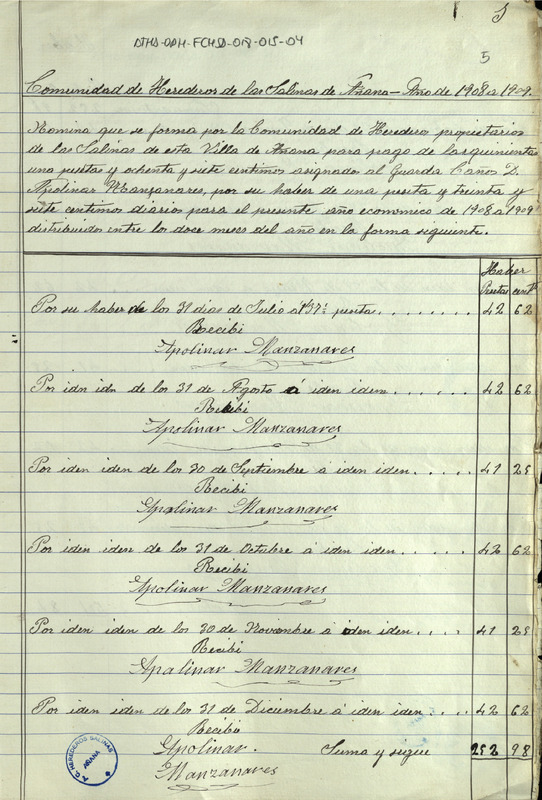 5
ATHA-DAH-FCHSA-018-015-04
5
Comunidad de Herederos de las Salinas de Añana - Año de 1908 a 1909.
Nomina que se forma por la Comunidad de Herederos propietarios
de las Salinas de esta Villa de Añana para pago de las quinientas
una pesetas y ochenta y siete centimos asignado al Guarda Caños D.
Apolinar Manzanares, por su haber de una peseta y treinta y
siete centimos diarios para el presente año economico de 1908 a 1909
distribuidos entre los doce meses del año en la forma siguiente.
Haber
Pesetas cents
Por su haber de los 31 dias de Julio a 1'37½ peseta. . . . . . . . 42 62
Recibi
Apolinar Manzanares
Por idn idn de los 31 de Agosto á iden iden. . . . . . 42 62
Recibi
Apolinar Manzanares
Por iden iden de los 30 de Septiembre á iden iden. . . . . 41 25
Recibi
Apolinar Manzanares
Por iden iden de los 31 de Octubre á iden iden. . . . . . 42 62
Recibi
Apolinar Manzanares
Por iden iden de los 30 de Noviembre á iden iden. . . . 41 25
Recibi
Apalinar Manzanares
Por iden iden de los 31 de Diciembre á iden iden. . . . 42 62
Recibi
Apolinar. Suma y sigue 252 98
Manzanares
HEREDEROS SALINAS
AÑANA